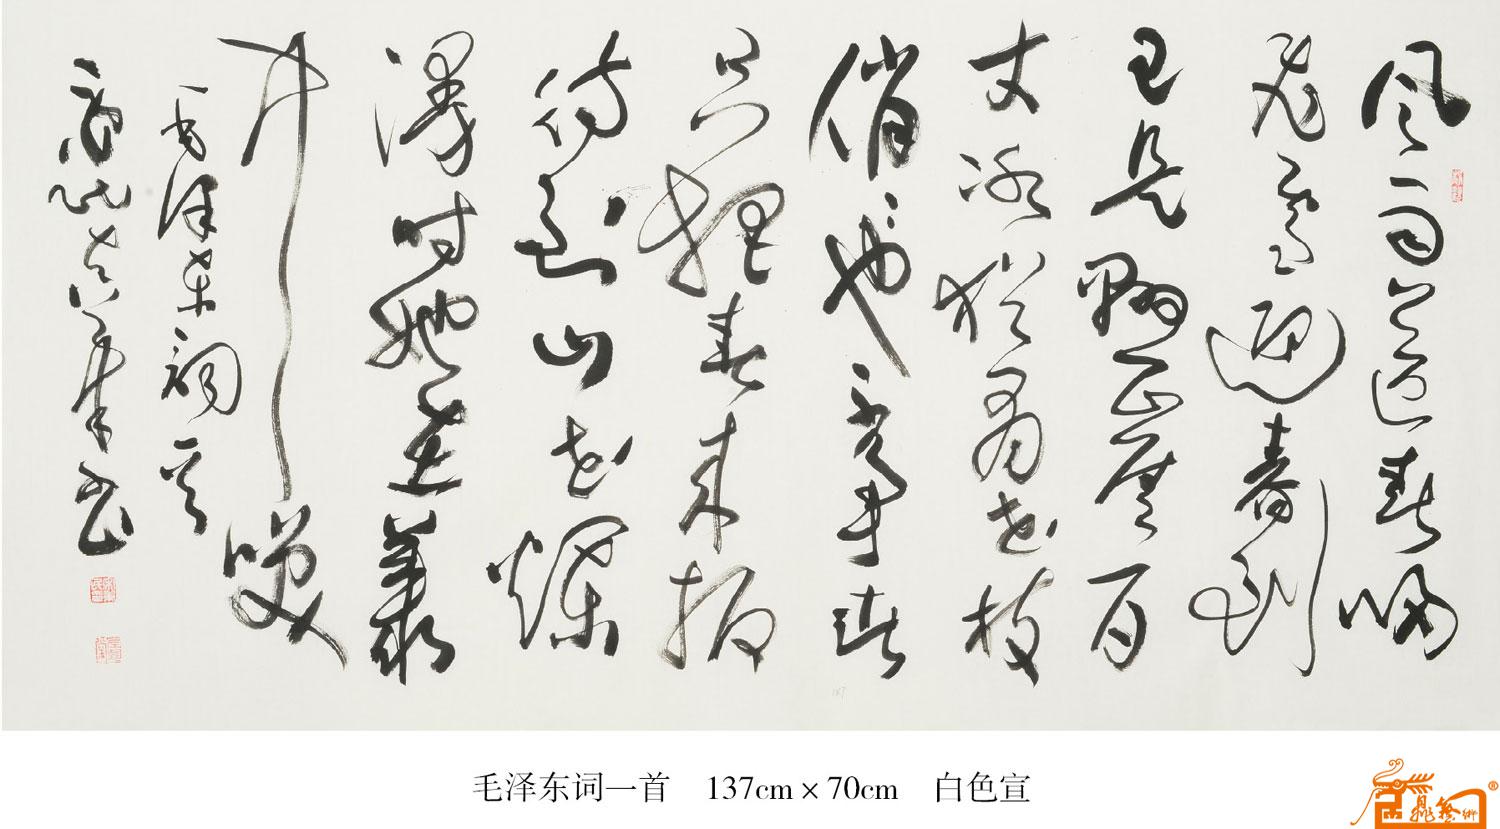 风雨送春歸
飛雪迎春到
已是懸崖百
丈冰猶有花枝
俏〻也不争春
只把春来报
待到山花爛
漫时她在叢
中笑
毛泽东词一首
毛泽东词一首 137cm × 70cm 白色宣